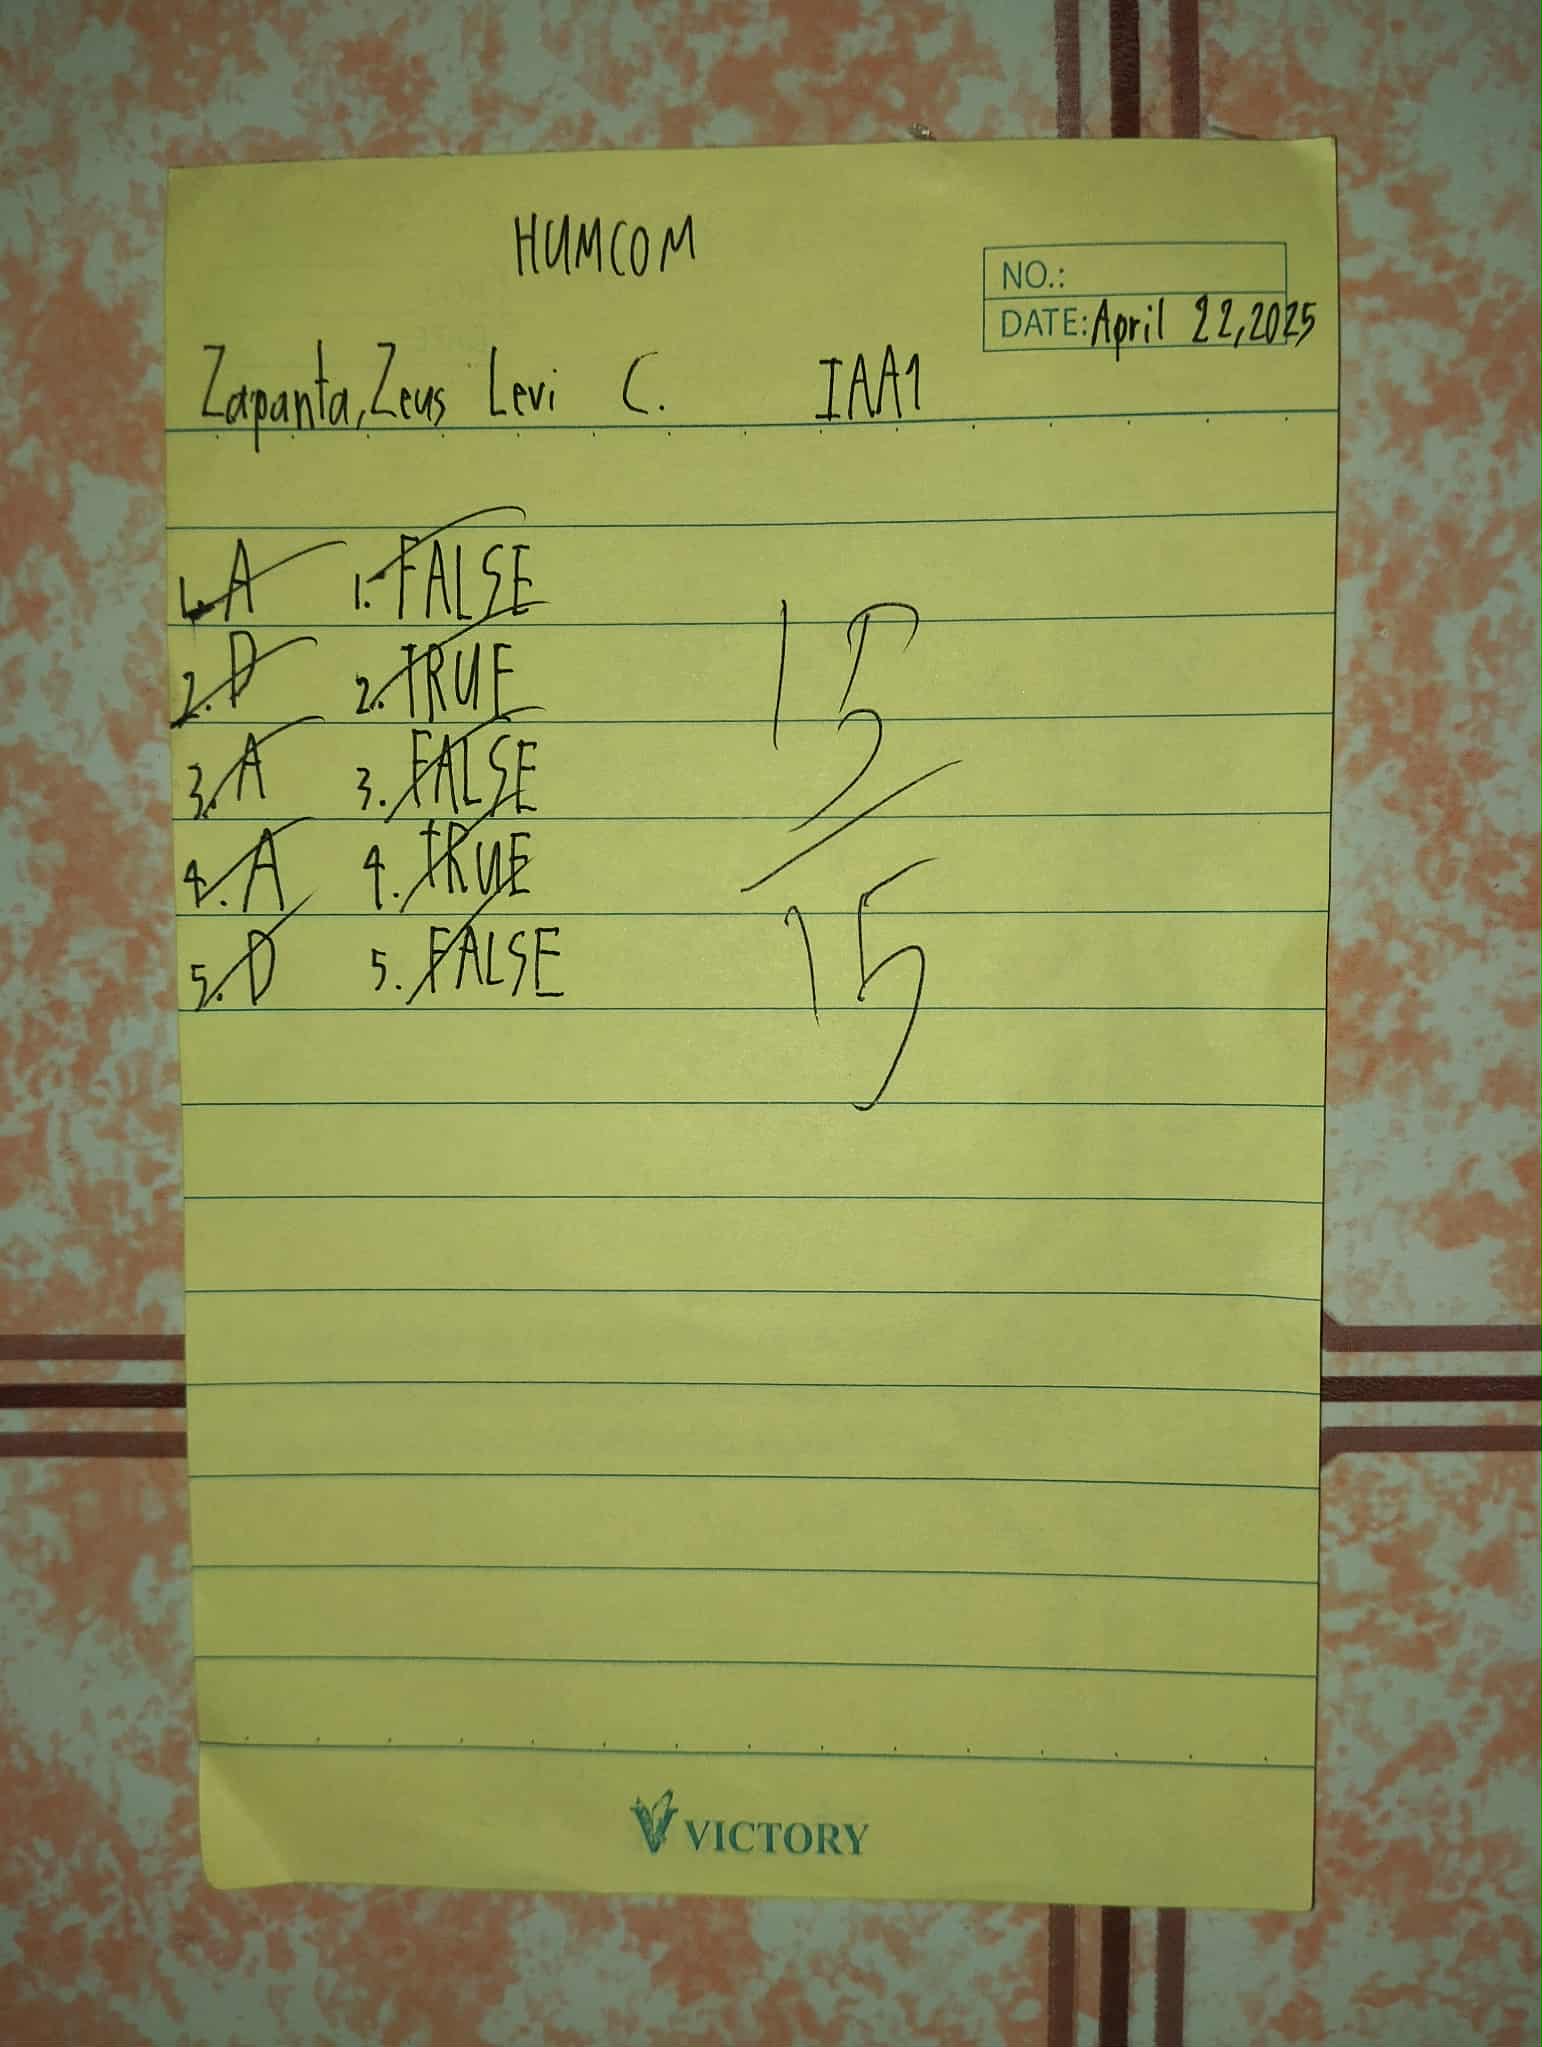 HUMCOM
NO.:
DATE: April 22, 2025
Zapanta, Zeus Levi C. IAA1
1. A 1. FALSE
2. D 2. TRUE
3. A 3. FALSE
4. A 4. TRUE
5. D 5. FALSE
15
15
VICTORY